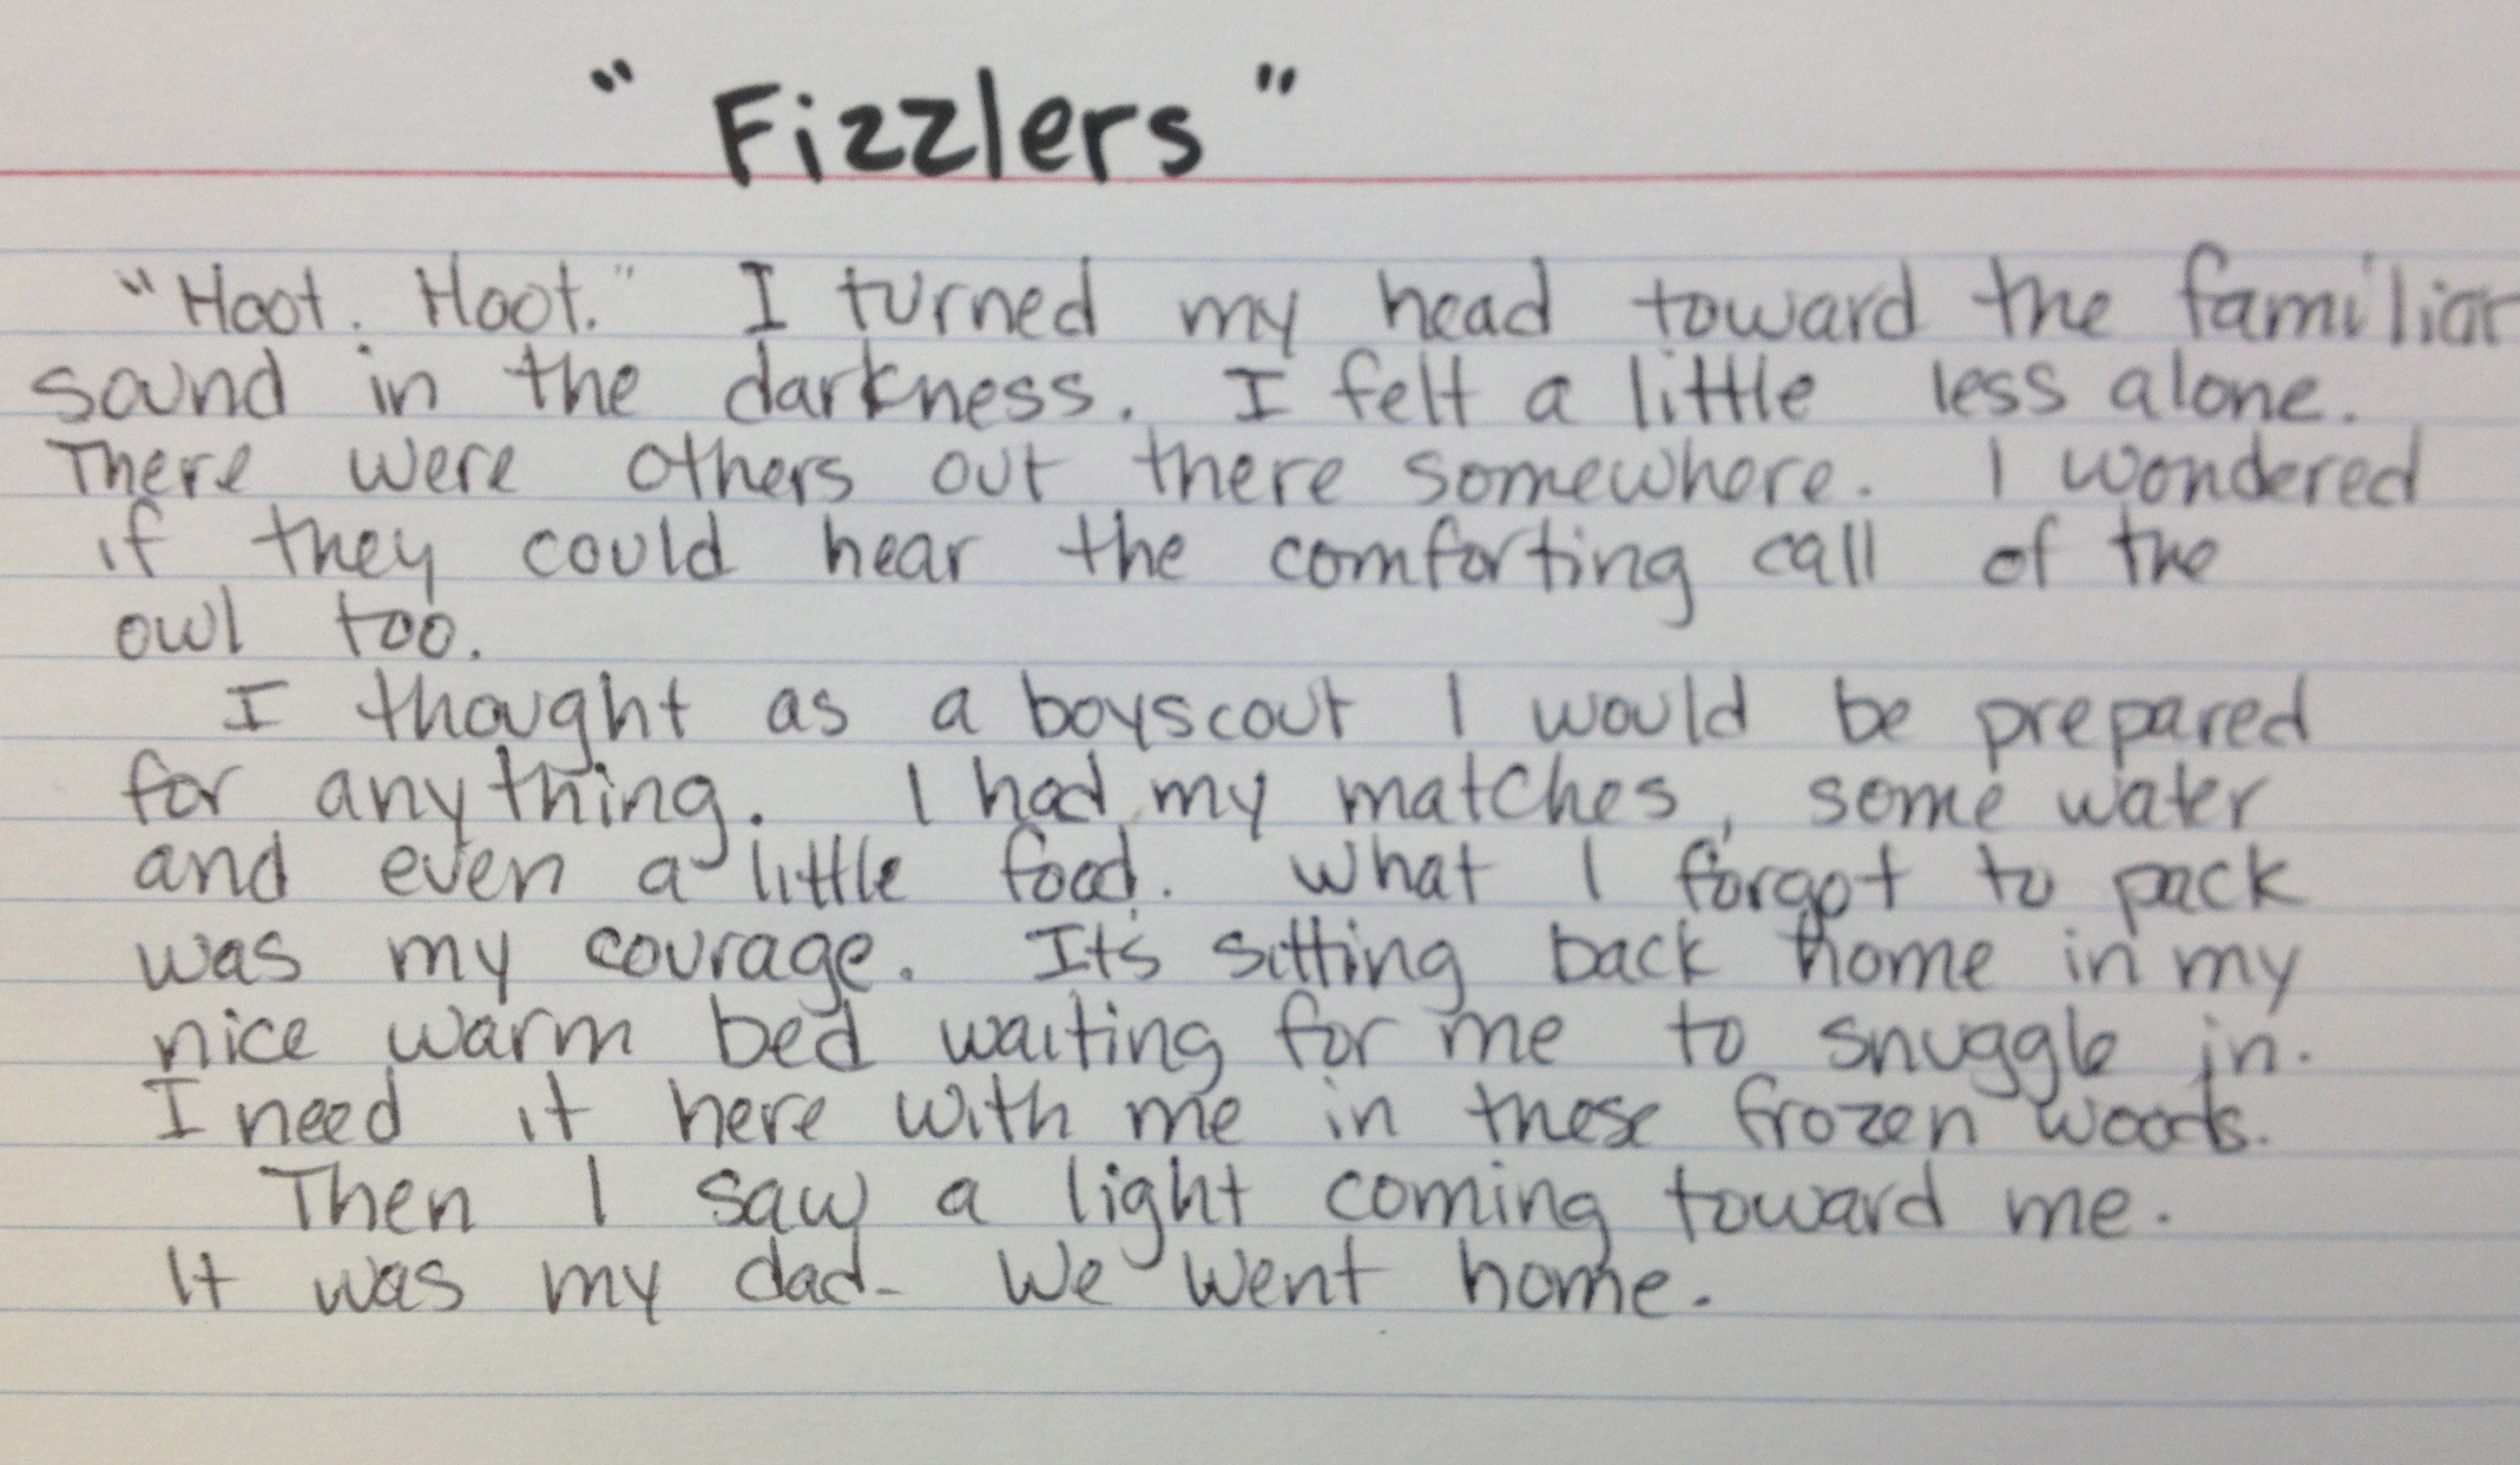 "Fizzlers"
"Hoot. Hoot." I turned my head toward the familiar
sound in the darkness. I felt a little less alone.
There were others out there somewhere. I wondered
if they could hear the comforting call of the
owl too.
I thought as a boyscout I would be prepared
for anything. I had my matches, some water
and even a little food. What I forgot to pack
was my courage. It's sitting back home in my
nice warm bed waiting for me to snuggle in.
I need it here with me in these frozen woods.
Then I saw a light coming toward me.
It was my dad. We went home.